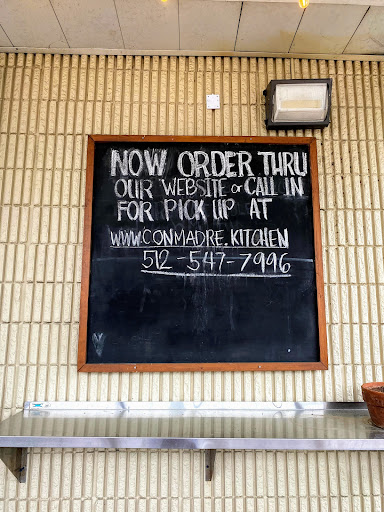 NOW ORDER THRU
OUR WEBSITE or CALL IN
FOR PICK UP AT
WWW.CONMADRE.KITCHEN
512-547-7996